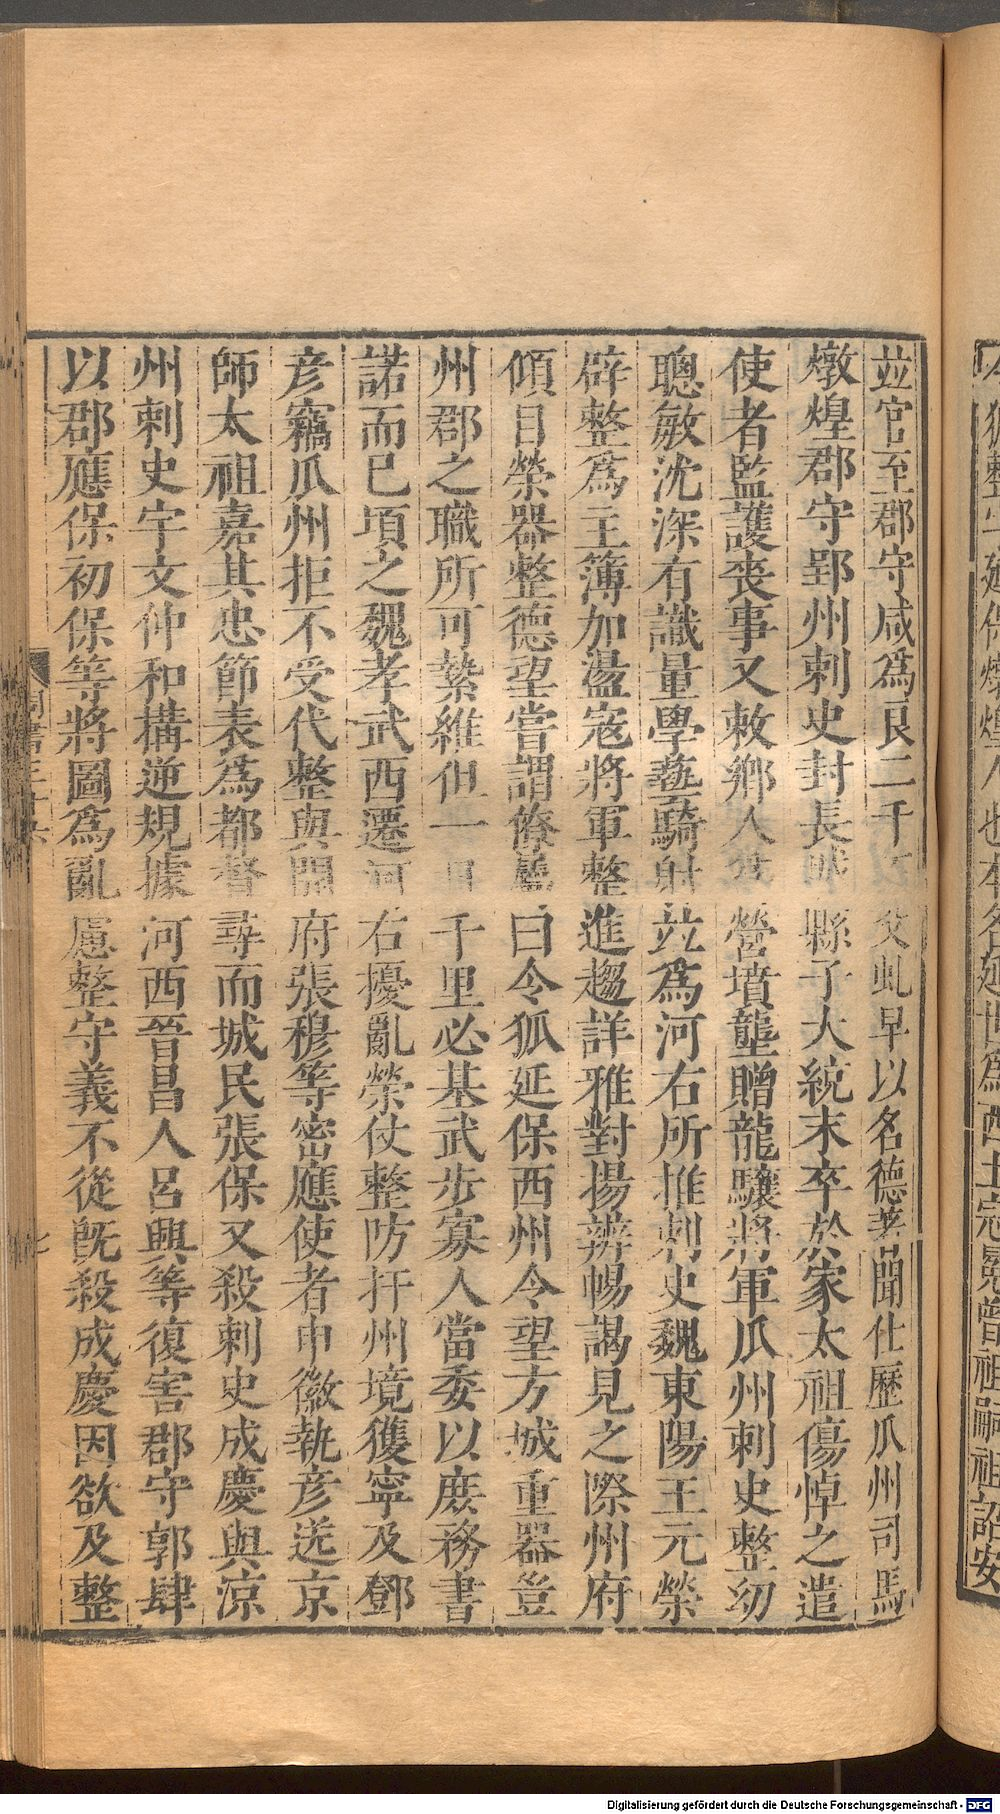 竝官至郡守咸爲良二千石父虬早以名德著聞仕歷瓜州司馬
燉煌郡守郢州刺史封長城縣子大統末卒於家太祖傷悼之遣
使者監護喪事又敕鄉人爲營墳壟贈龍驤將軍瓜州刺史整幼
聰敏沈深有識量學藝騎射竝爲河右所推刺史魏東陽王元榮
辟整爲主簿加盪寇將軍整進趨詳雅對揚辨暢謁見之際州府
傾目榮器整德望嘗謂僚屬曰令狐延保西州令望方城重器豈
州郡之職所可縶維但一日千里必基武步寡人當委以庶務書
諾而已頃之魏孝武西遷河右擾亂榮仗整防扞州境獲寧及鄧
彥竊瓜州拒不受代整與開府張穆等密應使者申徽執彥送京
師太祖嘉其忠節表爲都督尋而城民張保又殺刺史成慶與涼
州刺史宇文仲和構逆規據河西晉昌人呂興等復害郡守郭肆
以郡應保初保等將圖爲亂慮整守義不從旣殺成慶因欲及整
周書三十六
七
狐整字延保燉煌人也本名延世爲西土冠冕曾祖嗣祖詔安
Digitalisierung gefördert durch die Deutsche Forschungsgemeinschaft - DFG